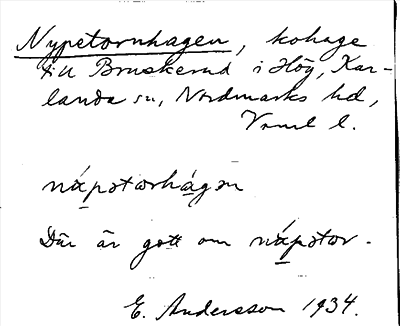 Nypetornhagen, kohage
till Bruskerud i Hög, Kar-
landa sn, Nordmarks hd,
Vrml l.
nǻpətorhǻgən
Där är gott om nǻpətor.
E. Andersson 1934.